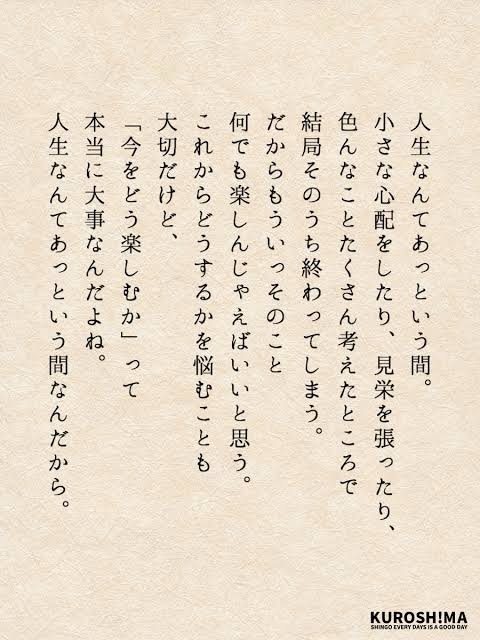 人生なんてあっという間。
小さな心配をしたり、見栄を張ったり、
色んなことたくさん考えたところで
結局そのうち終わってしまう。
だからもういっそのこと
何でも楽しんじゃえばいいと思う。
これからどうするかを悩むことも
大切だけど、
「今をどう楽しむか」って
本当に大事なんだよね。
人生なんてあっという間なんだから。
KUROSH!MA
SHINGO EVERY DAYS IS A GOOD DAY